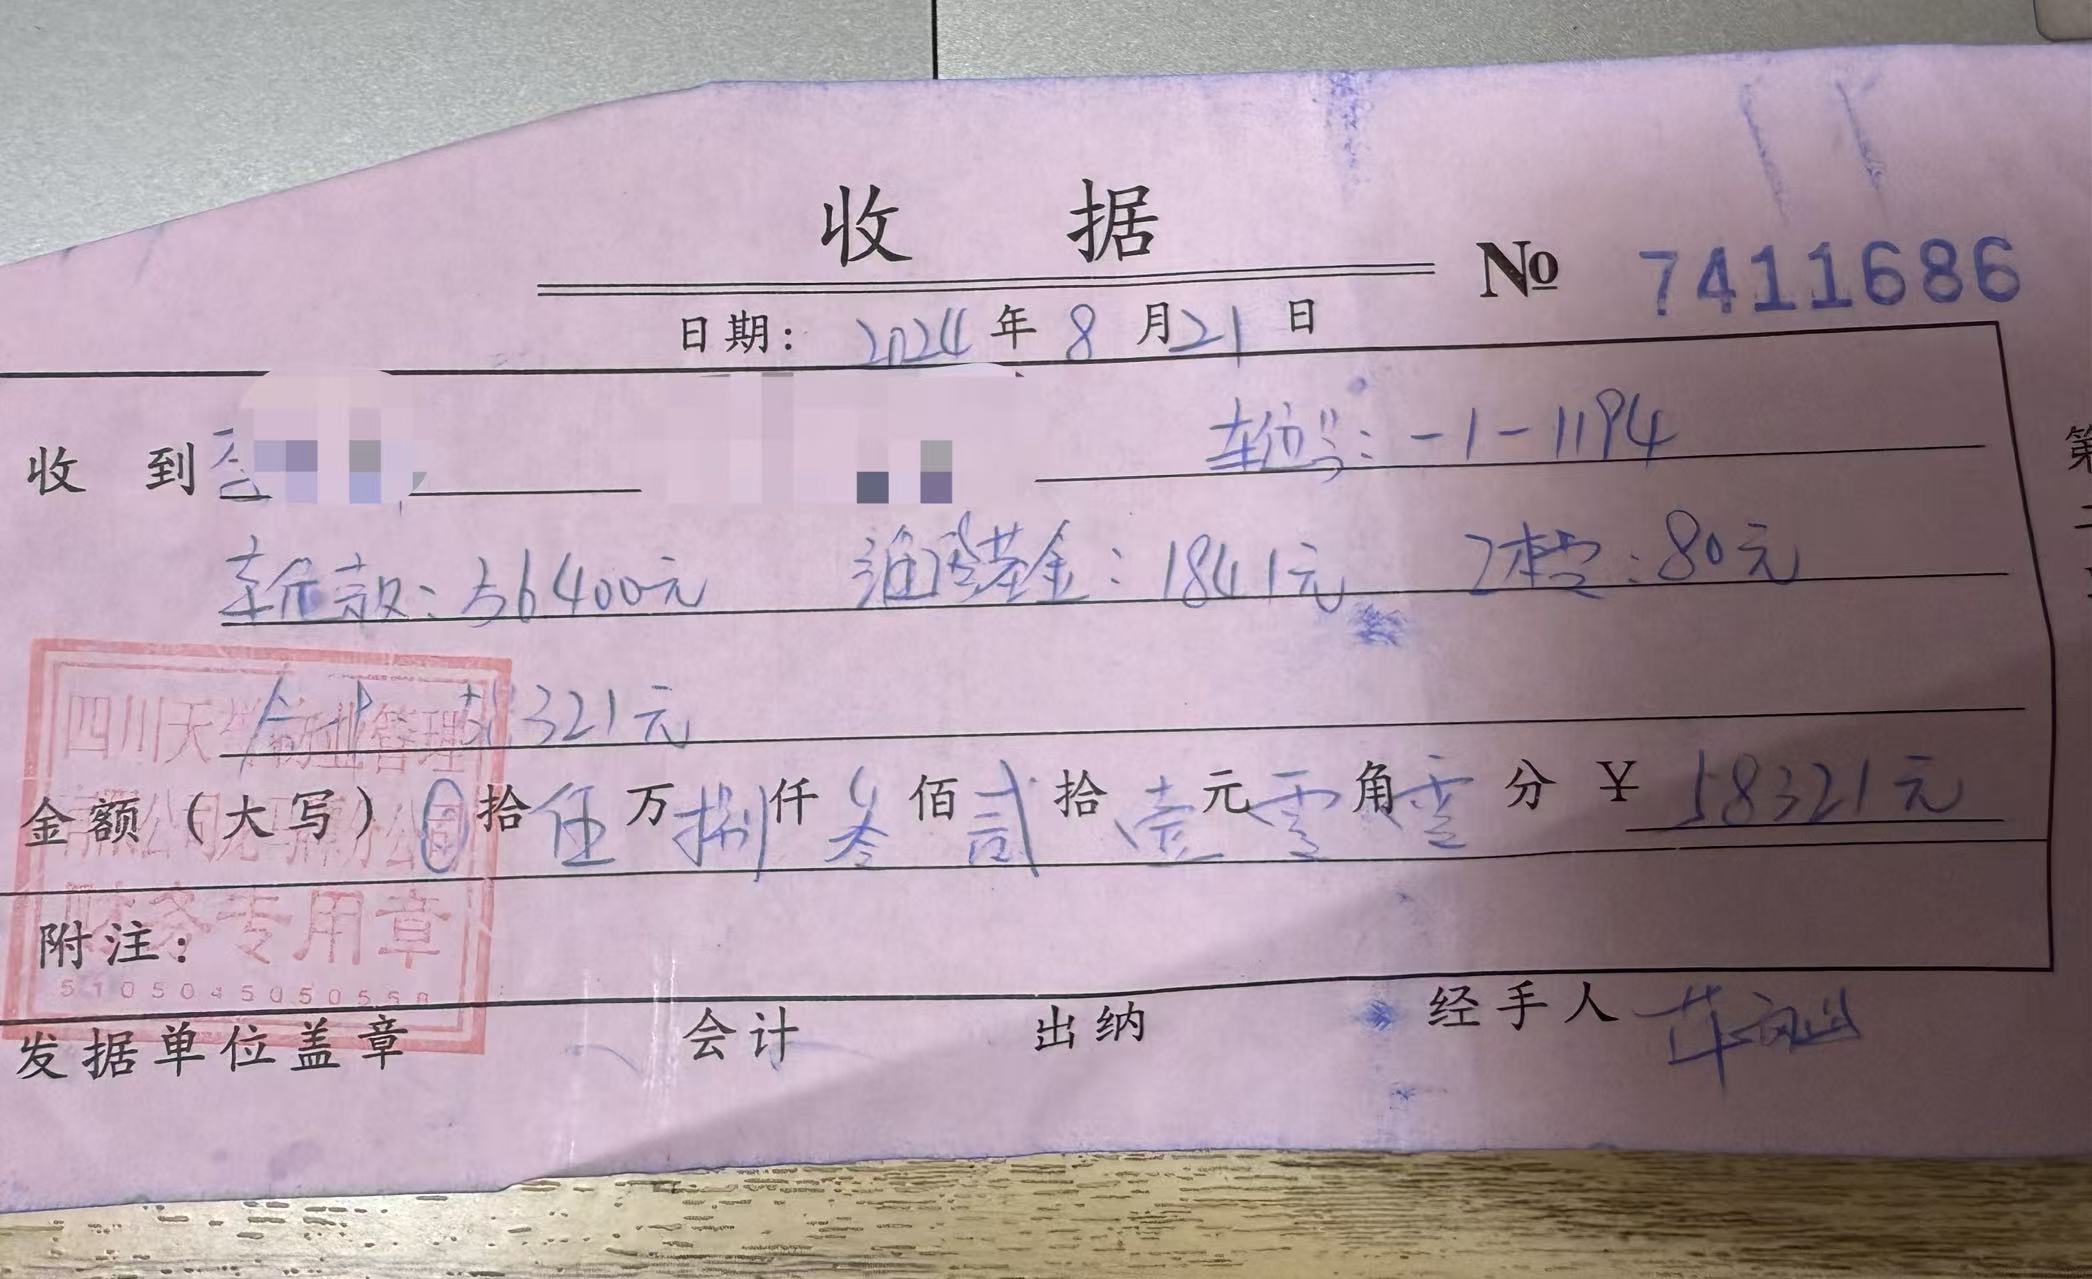 收 据
№ 7411686
日期: 2024 年 8 月 21 日
收 到 车位号: -1-1194
车位款: 56400元 维修基金: 1841元 工本费: 80元
合计 58321元
金额 (大写) 0 拾 伍 万 捌 仟 叁 佰 贰 拾 壹 元 零 角 零 分 ¥ 58321元
附注:
四川天华物业管理
有限公司
财务专用章
发据单位盖章 会计 出纳 经手人
第
二